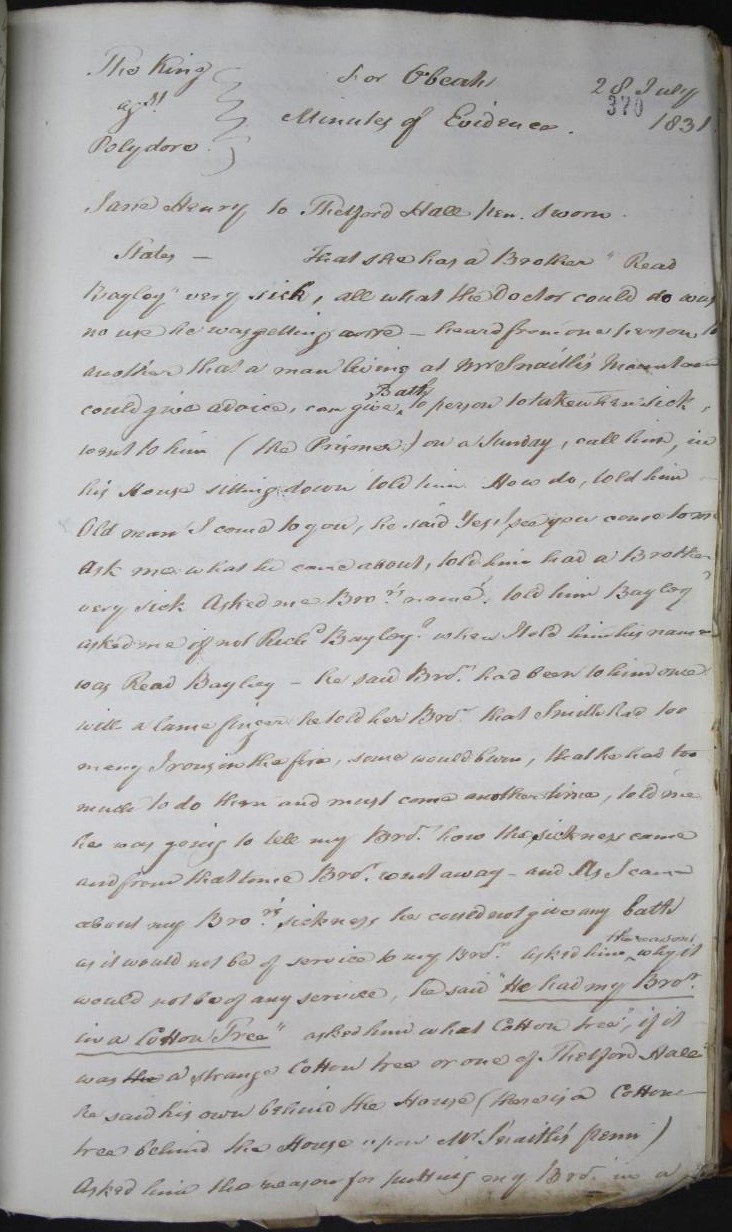 The King
agst
Polydore.
For Obeah
Minutes of Evidence.
28 July
370
1831
Jane Henry to Thetford Hall pen. Sworn.
States — That she has a Brother "Read
Bayley" very sick, all what the Doctor could do was
no use he was getting worse — heard from one person to
another that a man living at Mr Snaith's Mountain
could give advice, can give Bath to person to taken them sick,
went to him (the Prisoner) on a Sunday, call him, in
his House sitting down told him How do, told him
Old man I come to you, he said Yes I see you come to me
Ask me what he came about, told him had a Brother
very sick Asked me Bro.rs name? told him Bayley
asked me if not Richd Bayley? when I told him his name
was Read Bayley — he said Bror. had been to him once
with a lame finger he told her Bror. that Smith had too
many Irons in the fire, some would burn, that he had too
much to do then and must come another time, told me
he was going to tell my Bror. how the sickness came
and from that time Bror. went away — and As I came
about my Bro.rs sickness he could not give any bath
as it would not be of service to my Bror. asked him the reason why it
would not be of any service, he said "He had my Bror.
in a Cotton Tree" asked him what Cotton tree, if it
was the a strange Cotton tree or one of Thetford Hall
he said his own behind the House (there is a Cotton
tree behind the House upon Mr Snaith's penn)
Asked him the reason for putting my Bror. in a